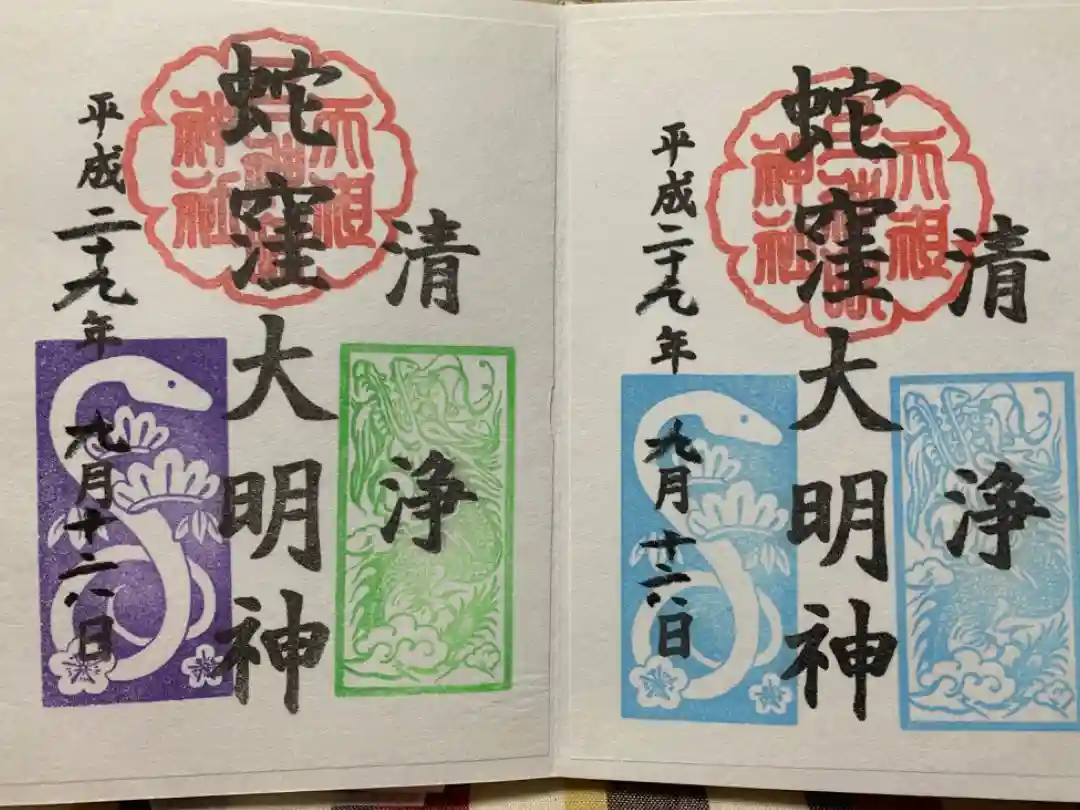 清浄
蛇窪大明神
平成二十九年九月十六日
天祖
神社
清浄
蛇窪大明神
平成二十九年九月十六日
天祖
神社